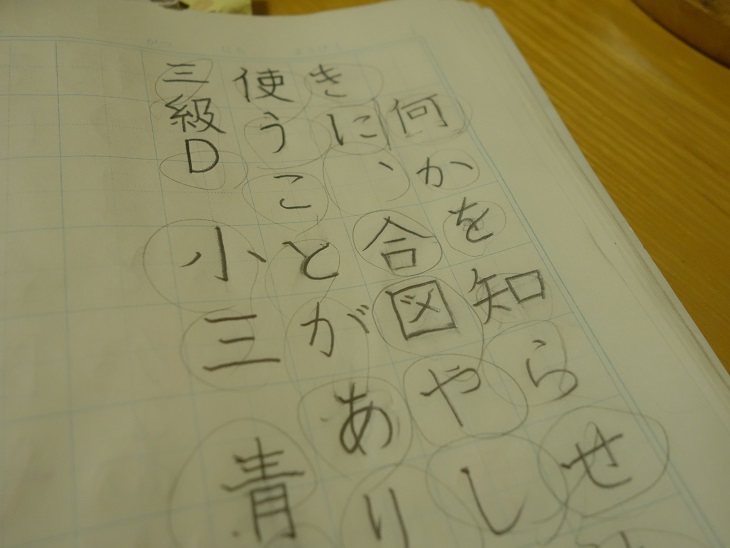 何かを知らせ
きに、合図やし
使うことがあり
三級D小三青